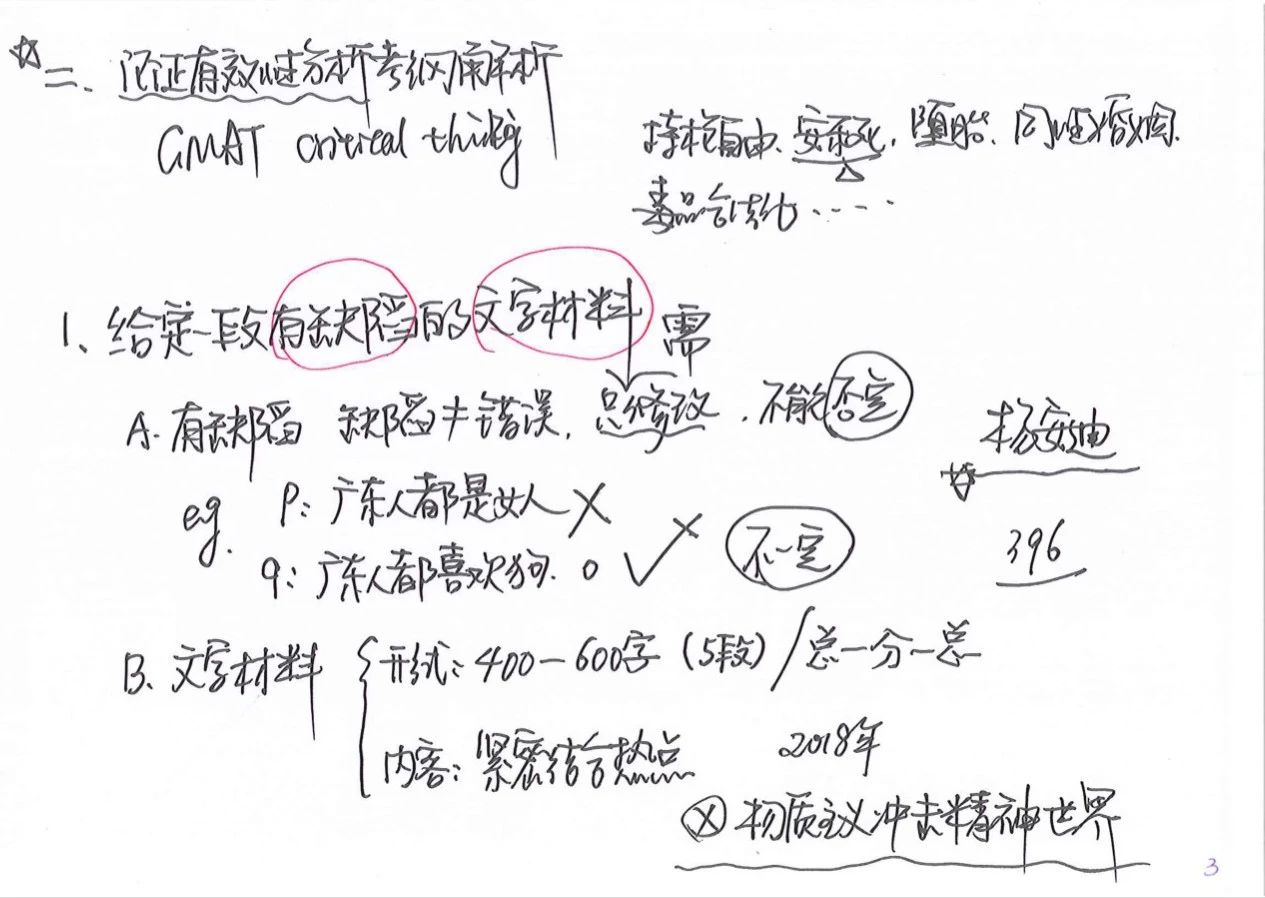 ☆二、论证有效性分析考纲解析
GMAT critical thinking
持枪自由、安乐死,堕胎、同性婚姻、
毒品合法化·····
1、给定一段有缺陷的文字材料 需
A. 有缺陷 缺陷≠错误,总修改,不能否定
杨安迪
☆
eg. P: 广东人都是女人 ×
q: 广东人都喜欢狗. 0 ✓ × 不一定
396
B、文字材料 { 形式: 400-600字 (5段) / 总-分-总
内容: 紧密结合热点 2018年
ⓧ 物质主义冲击精神世界
3